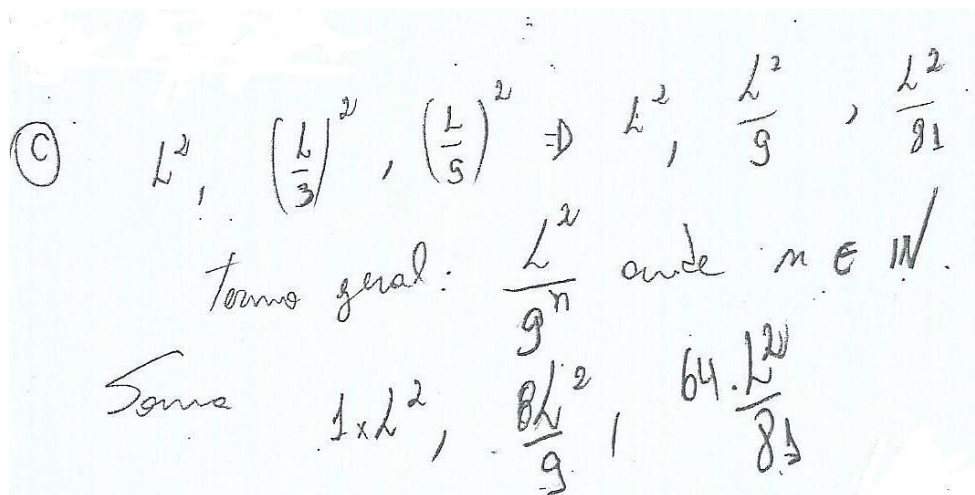 C L², (L/3)², (L/9)² => L², L²/9, L²/81
Termo geral: L²/9ⁿ onde n ∈ ℕ.
Soma 1×L², 8L²/9, 64.L²/81